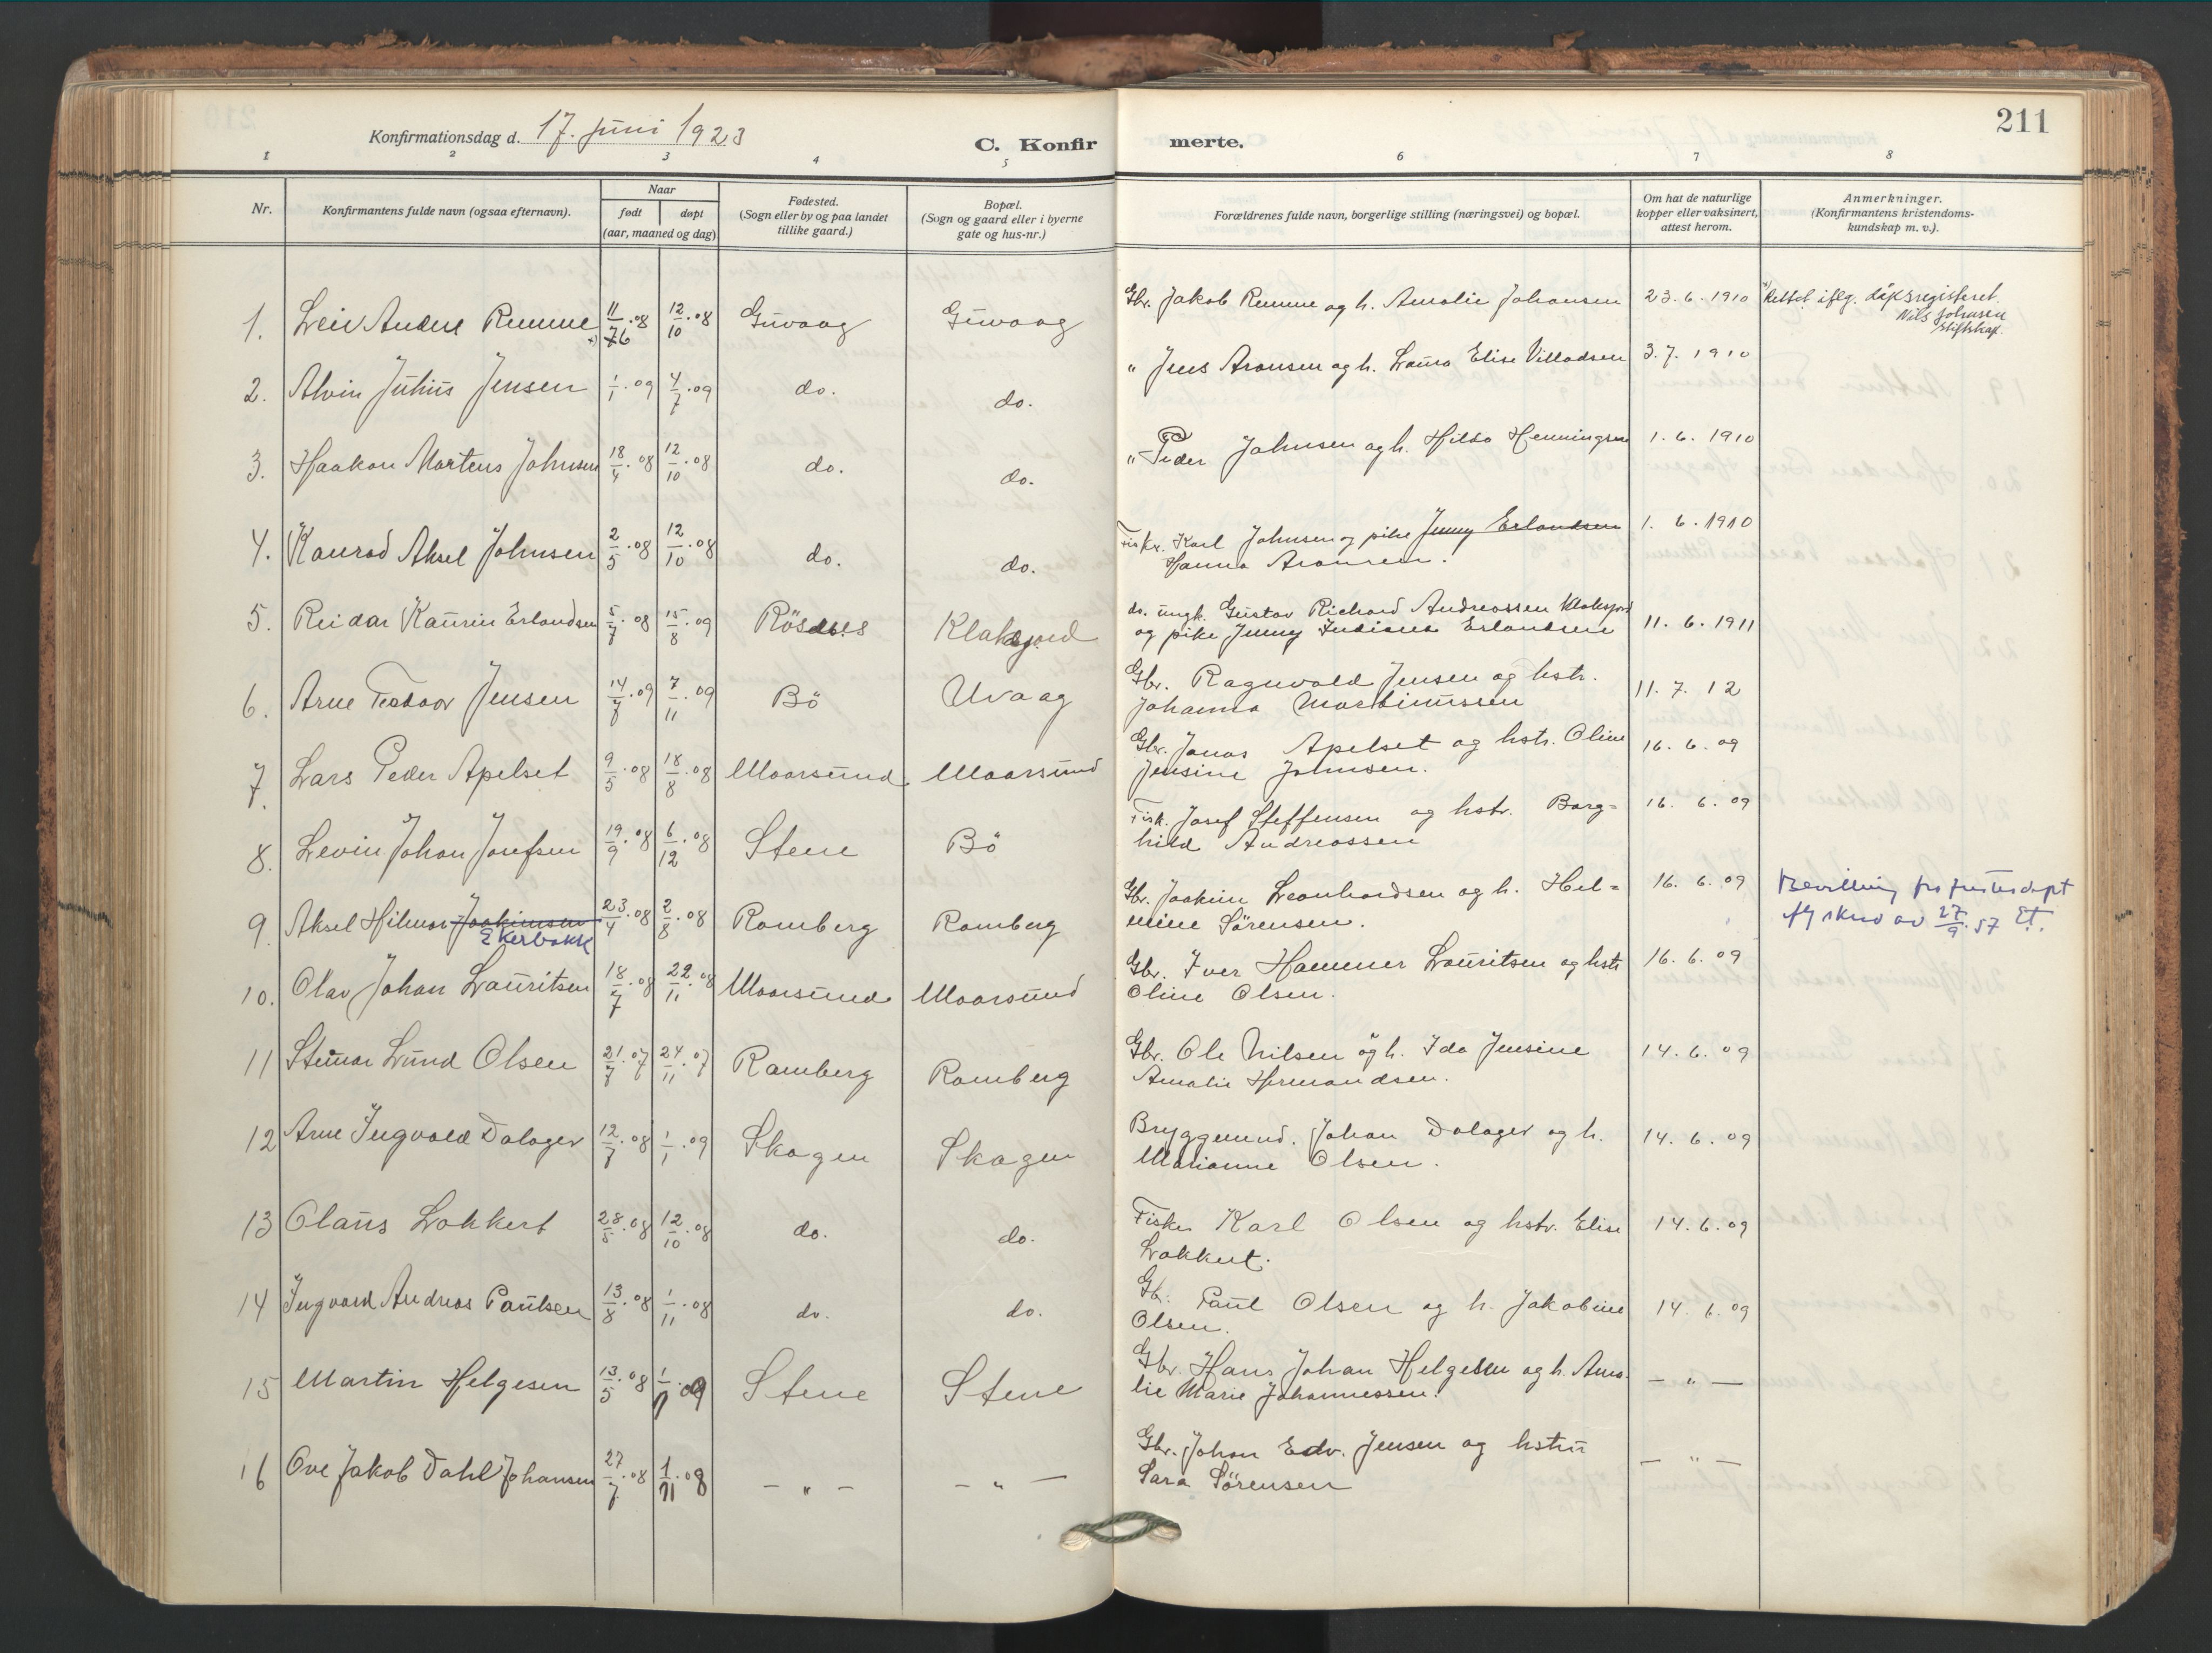 Konfirmationsdag d. 17. juni 1923
C. Konfirmerte.
211
1 2 3 4 5 6 7 8
Nr.
Konfirmantens fulde navn (ogsaa efternavn).
Naar
født døpt
(aar, maaned og dag)
Fødested.
(Sogn eller by og paa landet
tillike gaard.)
Bopæl.
(Sogn og gaard eller i byerne
gate og hus-nr.)
Forældrenes fulde navn, borgerlige stilling (næringsvei) og bopæl.
Om hat de naturlige
kopper eller vaksinert,
attest herom.
Anmerkninger.
(Konfirmantens kristendoms-
kundskap m. v.).
1. Leiv Andene Remme x) 11/6.08 12/10.08 Guvaag Guvaag Gbr. Jakob Remme og h. Amalie Johansen 23.6.1910 x) Rettet iflg. dåpsregisteret.
Nils Johnsen
stiftskap.
2. Alvin Julius Jensen 1/1.09 4/7.09 do. do. " Jens Aronsen og h. Laura Elise Villadsen 3.7.1910
3. Haakon Martens Johnsen 18/4.08 12/10.08 do. do. " Peder Johnsen og h. Hilda Henningsen 1.6.1910
4. Konrad Aksel Johnsen 2/5.08 12/10.08 do. do. Fisker. Karl Johnsen og pike Jenny Erlandsen 1.6.1910
Hanna Aronsen.
5. Reidar Kaurin Erlandsen 5/7.08 15/8.09 Klaksjord do. ungk. Gustav Richard Andreassen Klaksjord
og pike Jenny Indiana Erlandsen 11.6.1911
6. Arne Teodor Jensen 14/7.09 7/11.09 Bö Uvaag Gbr. Ragnvald Jensen og hstr.
Johanna Martinussen 11.7.12
7. Lars Peder Apelset 9/5.08 18/8.08 Maarsund Maarsund Gbr. Jonas Apelset og hstr. Oline
Jensine Johnsen. 16.6.09
8. Levin Johan Josefsen 19/9.08 6/12.08 Stene Bö Fisk. Josef Steffensen og hstr. Borg=
hild Andreassen 16.6.09
9. Aksel Hilmar Joakimsen 23/4.08 2/8.08 Ramberg Ramberg Gbr. Joakim Leonhardsen og h. Hel=
Ekerbakk
mine Sørensen. 16.6.09 Bevilling fra
skriv av 27/9.57
10. Olav Johan Lauritsen 18/7.08 22/11.08 Maarsund Maarsund Gbr. Iver Hammer Lauritsen og hstr
Oline Olsen. 16.6.09
11 Steinar Lund Olsen 21/7.07 24/11.07 Ramberg Ramberg Gbr. Ole Nilsen og h. Ida Jensine
Amalie Hermandsen. 14.6.09
12 Arne Ingvald Dalager 12/7.08 1/1.09 Skagen Skagen Bryggemnd. Johan Dalager og h.
Marianne Olsen. 14.6.09
13 Olaus Lokkert 28/5.08 12/10.08 do. do. Fisker Karl Olsen og hstr. Elise
Lokkert. 14.6.09
14 Ingvald Andreas Paulsen 13/8.08 1/11.08 do. do. Gb. Paul Olsen og h. Jakobine
Olsen. 14.6.09
15 Martin Helgesen 13/5.08 Stene Stene Gbr. Hans Johan Helgesen og h. Ama-
lie Marie Johannessen. — " —
16 Ove Jakob Dahl Johansen 27/7.08 1/11.08 — " — — " — Gbr. Johan Edv. Jensen og hstru
Sara Sörensen — " —